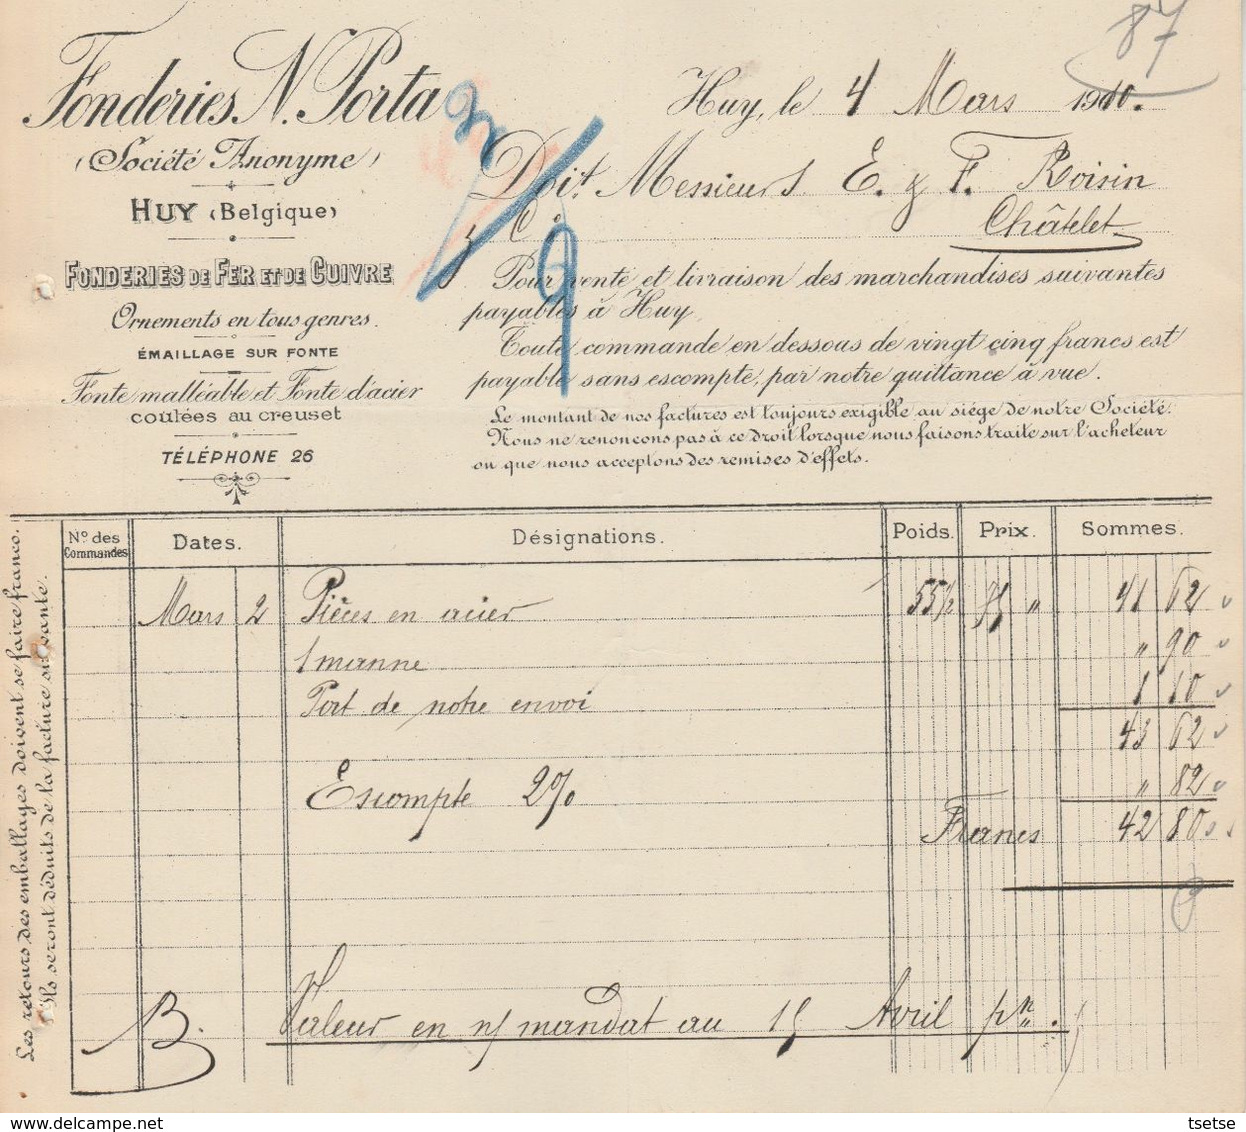 87
Fonderies N. Porta
(Société Anonyme)
HUY (Belgique)
FONDERIES DE FER ET DE CUIVRE
Ornements en tous genres.
ÉMAILLAGE SUR FONTE
Fonte malléable et Fonte d'acier
coulées au creuset
TÉLÉPHONE 26
Huy, le 4 Mars 1910.
Doit Messieurs E. & F. Roisin
& Cie Châtelet
Pour vente et livraison des marchandises suivantes
payables à Huy.
Toute commande en dessous de vingt cinq francs est
payable sans escompte, par notre quittance à vue.
Le montant de nos factures est toujours exigible au siége de notre Société.
Nous ne renoncons pas à ce droit lorsque nous faisons traite sur l'acheteur
ou que nous acceptons des remises d'effets.
Les retours des emballages doivent se faire franco.
Ils seront déduits de la facture suivante.
N° des Commandes Dates. Désignations. Poids. Prix. Sommes.
Mars 2 Pièces en acier 55½ 75 " 41 62
1 manne " 90
Port de notre envoi 1 10
43 62
Escompte 2% " 82
Francs 42 80
B. Valeur en n/ mandat au 15 Avril pn.
tsetse